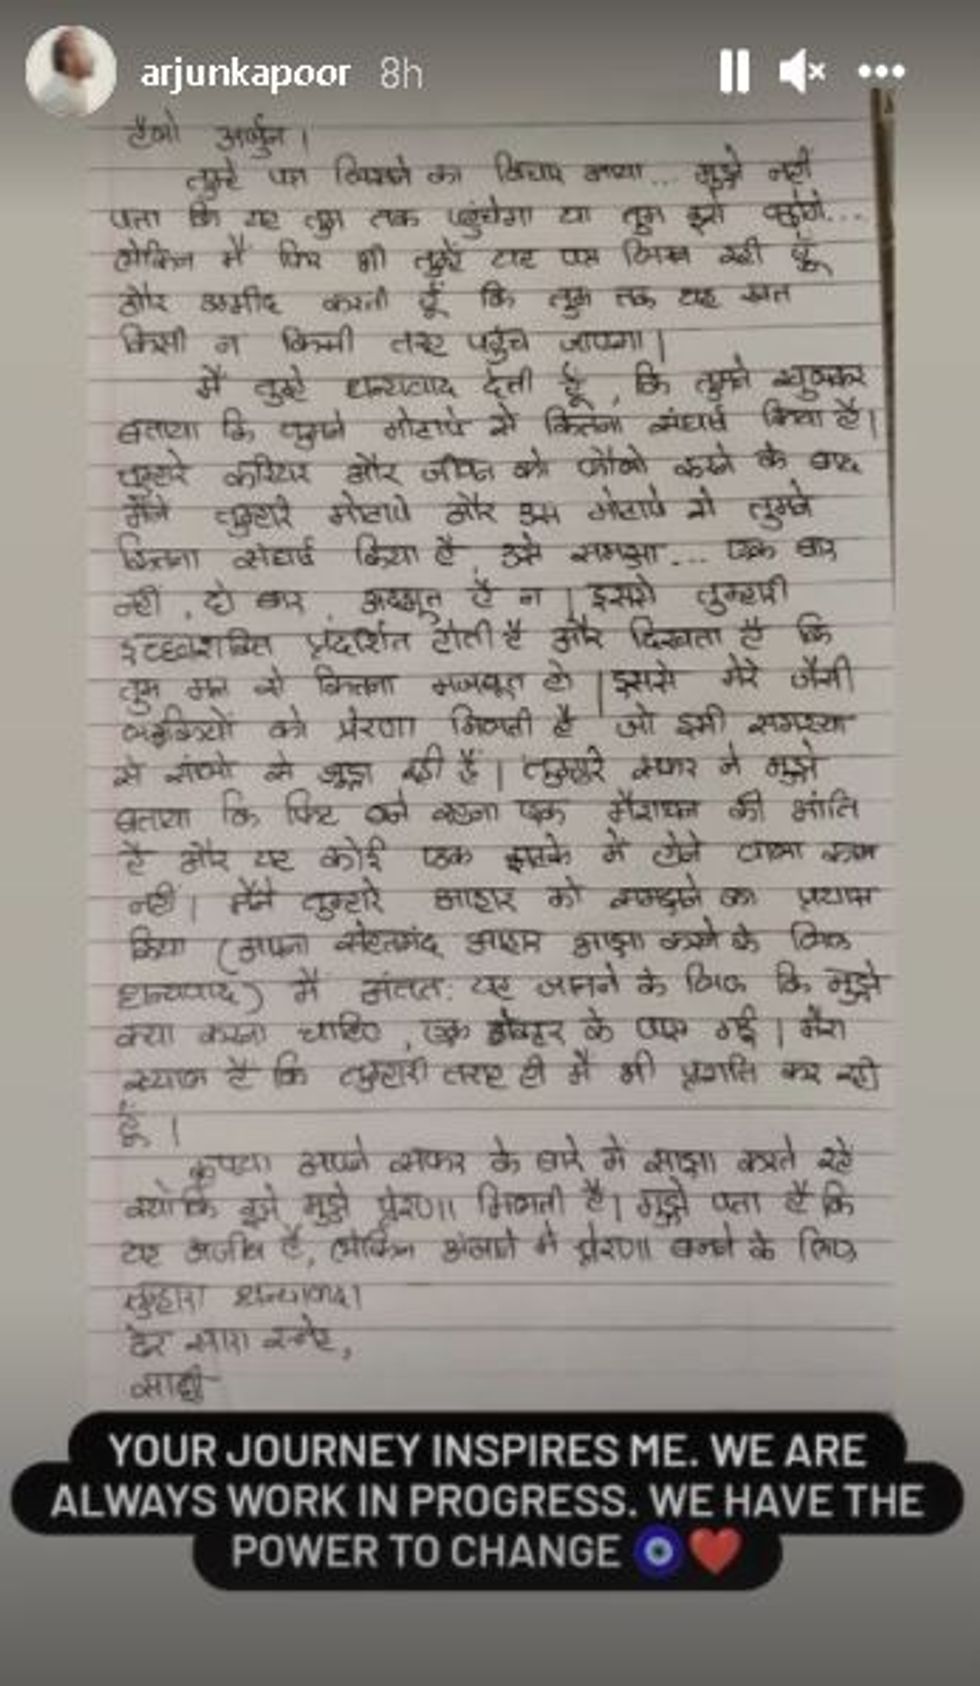 arjunkapoor 8h
हैलो अर्जुन।
तुम्हे पत्र लिखने का विचार आया... मुझे नहीं
पता कि यह तुम तक पहुंचेगा या तुम इसे पढ़ोगे...
लेकिन मैं फिर भी तुम्हें यह पत्र लिख रही हूँ
और उम्मीद करती हूँ कि तुम तक यह खत
किसी न किसी तरह पहुंच जाएगा।
मैं तुम्हे धन्यवाद देती हूँ, कि तुमने खुलकर
बताया कि तुमने मोटापे से कितना संघर्ष किया है।
तुम्हारे करियर और जीवन को फॉलो करने के बाद
मैंने तुम्हारे मोटापे और इस मोटापे से तुमने
कितना संघर्ष किया है, उसे समझा... एक बार
नहीं, दो बार, अदभूत है न। इससे तुम्हारी
इच्छाशक्ति प्रदर्शित होती है और दिखता है कि
तुम मन से कितना मजबूत हो। इससे मेरे जैसी
लड़कियों को प्रेरणा मिलती है जो इसी समस्या
से सालों से जूझ रही हैं। तुम्हारे सफर ने मुझे
बताया कि फिट बने रहना एक मैराथन की भांति
है और यह कोई एक झटके में होने वाला काम
नहीं। मैंने तुम्हारे आहार को समझने का प्रयास
किया (अपना सेहतमंद आहार साझा करने के लिए
धन्यवाद) मैं अंतत: यह जानने के लिए कि मुझे
क्या करना चाहिए, एक डॉक्टर के पास गई। मेरा
ख्याल है कि तुम्हारी तरह ही मैं भी प्रगति कर रही
हूँ।
कृपया अपने सफर के बारे में साझा करते रहें
क्योंकि इसे मुझे प्रेरणा मिलती है। मुझे पता है कि
यह अजीब है, लेकिन अंजाने में प्रेरणा बनने के लिए
तुम्हारा धन्यवाद।
ढेर सारा स्नेह,
YOUR JOURNEY INSPIRES ME. WE ARE
ALWAYS WORK IN PROGRESS. WE HAVE THE
POWER TO CHANGE 🧿❤️